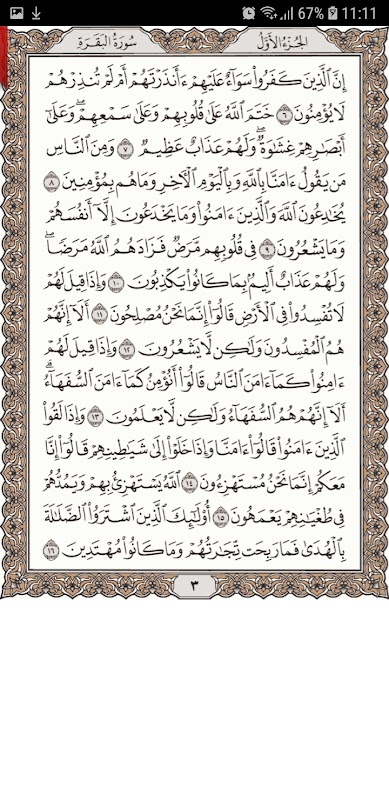 67% 11:11
سُورَةُ البَقَرَةِ الجُزْءُ الأَوَّلُ
إِنَّ ٱلَّذِينَ كَفَرُوا۟ سَوَآءٌ عَلَيْهِمْ ءَأَنذَرْتَهُمْ أَمْ لَمْ تُنذِرْهُمْ
لَا يُؤْمِنُونَ ٦ خَتَمَ ٱللَّهُ عَلَىٰ قُلُوبِهِمْ وَعَلَىٰ سَمْعِهِمْ ۖ وَعَلَىٰٓ
أَبْصَـٰرِهِمْ غِشَـٰوَةٌ ۖ وَلَهُمْ عَذَابٌ عَظِيمٌ ٧ وَمِنَ ٱلنَّاسِ
مَن يَقُولُ ءَامَنَّا بِٱللَّهِ وَبِٱلْيَوْمِ ٱلْـَٔاخِرِ وَمَا هُم بِمُؤْمِنِينَ ٨
يُخَـٰدِعُونَ ٱللَّهَ وَٱلَّذِينَ ءَامَنُوا۟ وَمَا يَخْدَعُونَ إِلَّآ أَنفُسَهُمْ
وَمَا يَشْعُرُونَ ٩ فِى قُلُوبِهِم مَّرَضٌ فَزَادَهُمُ ٱللَّهُ مَرَضًا ۖ
وَلَهُمْ عَذَابٌ أَلِيمٌۢ بِمَا كَانُوا۟ يَكْذِبُونَ ١٠ وَإِذَا قِيلَ لَهُمْ
لَا تُفْسِدُوا۟ فِى ٱلْأَرْضِ قَالُوٓا۟ إِنَّمَا نَحْنُ مُصْلِحُونَ ١١ أَلَآ إِنَّهُمْ
هُمُ ٱلْمُفْسِدُونَ وَلَـٰكِن لَّا يَشْعُرُونَ ١٢ وَإِذَا قِيلَ لَهُمْ
ءَامِنُوا۟ كَمَآ ءَامَنَ ٱلنَّاسُ قَالُوٓا۟ أَنُؤْمِنُ كَمَآ ءَامَنَ ٱلسُّفَهَآءُ ۗ
أَلَآ إِنَّهُمْ هُمُ ٱلسُّفَهَآءُ وَلَـٰكِن لَّا يَعْلَمُونَ ١٣ وَإِذَا لَقُوا۟
ٱلَّذِينَ ءَامَنُوا۟ قَالُوٓا۟ ءَامَنَّا وَإِذَا خَلَوْا۟ إِلَىٰ شَيَـٰطِينِهِمْ قَالُوٓا۟ إِنَّا
مَعَكُمْ إِنَّمَا نَحْنُ مُسْتَهْزِءُونَ ١٤ ٱللَّهُ يَسْتَهْزِئُ بِهِمْ وَيَمُدُّهُمْ
فِى طُغْيَـٰنِهِمْ يَعْمَهُونَ ١٥ أُو۟لَـٰٓئِكَ ٱلَّذِينَ ٱشْتَرَوُا۟ ٱلضَّلَـٰلَةَ
بِٱلْهُدَىٰ فَمَا رَبِحَت تِّجَـٰرَتُهُمْ وَمَا كَانُوا۟ مُهْتَدِينَ ١٦
٣